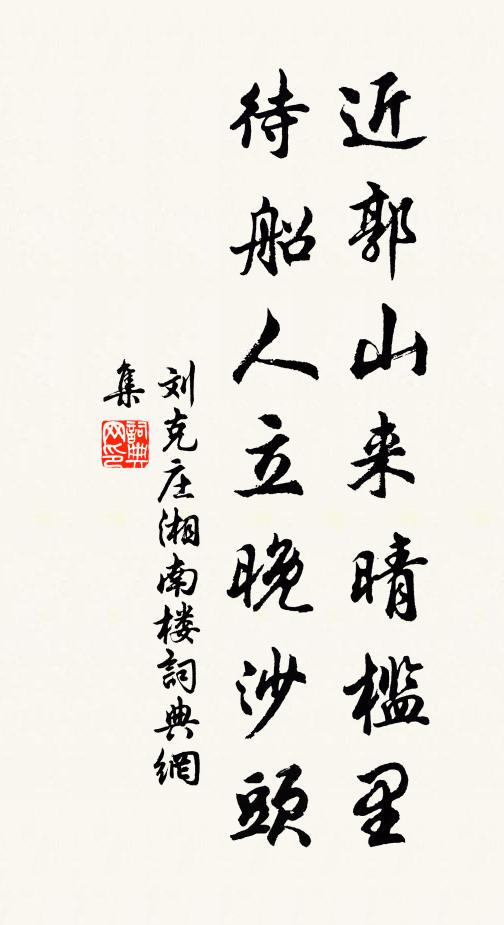 近郭山来晴槛里
待船人立晚沙头
刘克庄湘南楼詞典網
集
詞典网印